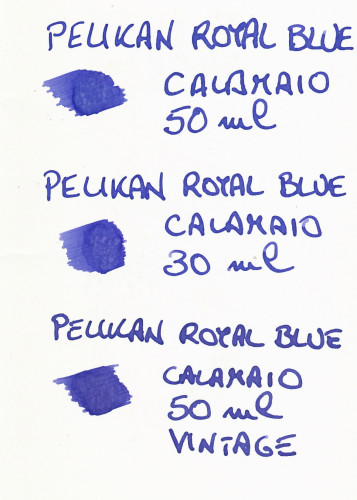 PELIKAN ROYAL BLUE
CALAMAIO
50 ml
PELIKAN ROYAL BLUE
CALAMAIO
30 ml
PELIKAN ROYAL BLUE
CALAMAIO
50 ml
VINTAGE